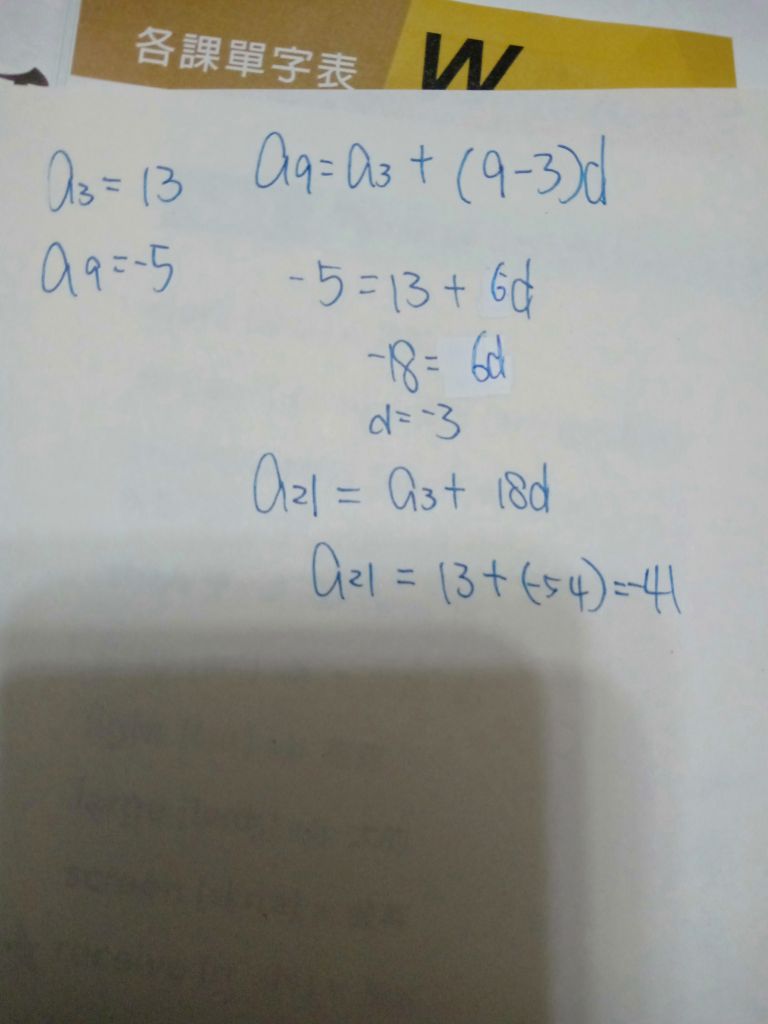 各課單字表 W
a3 = 13
a9 = -5
a9 = a3 + (9-3)d
-5 = 13 + 6d
-18 = 6d
d = -3
a21 = a3 + 18d
a21 = 13 + (-54) = -41